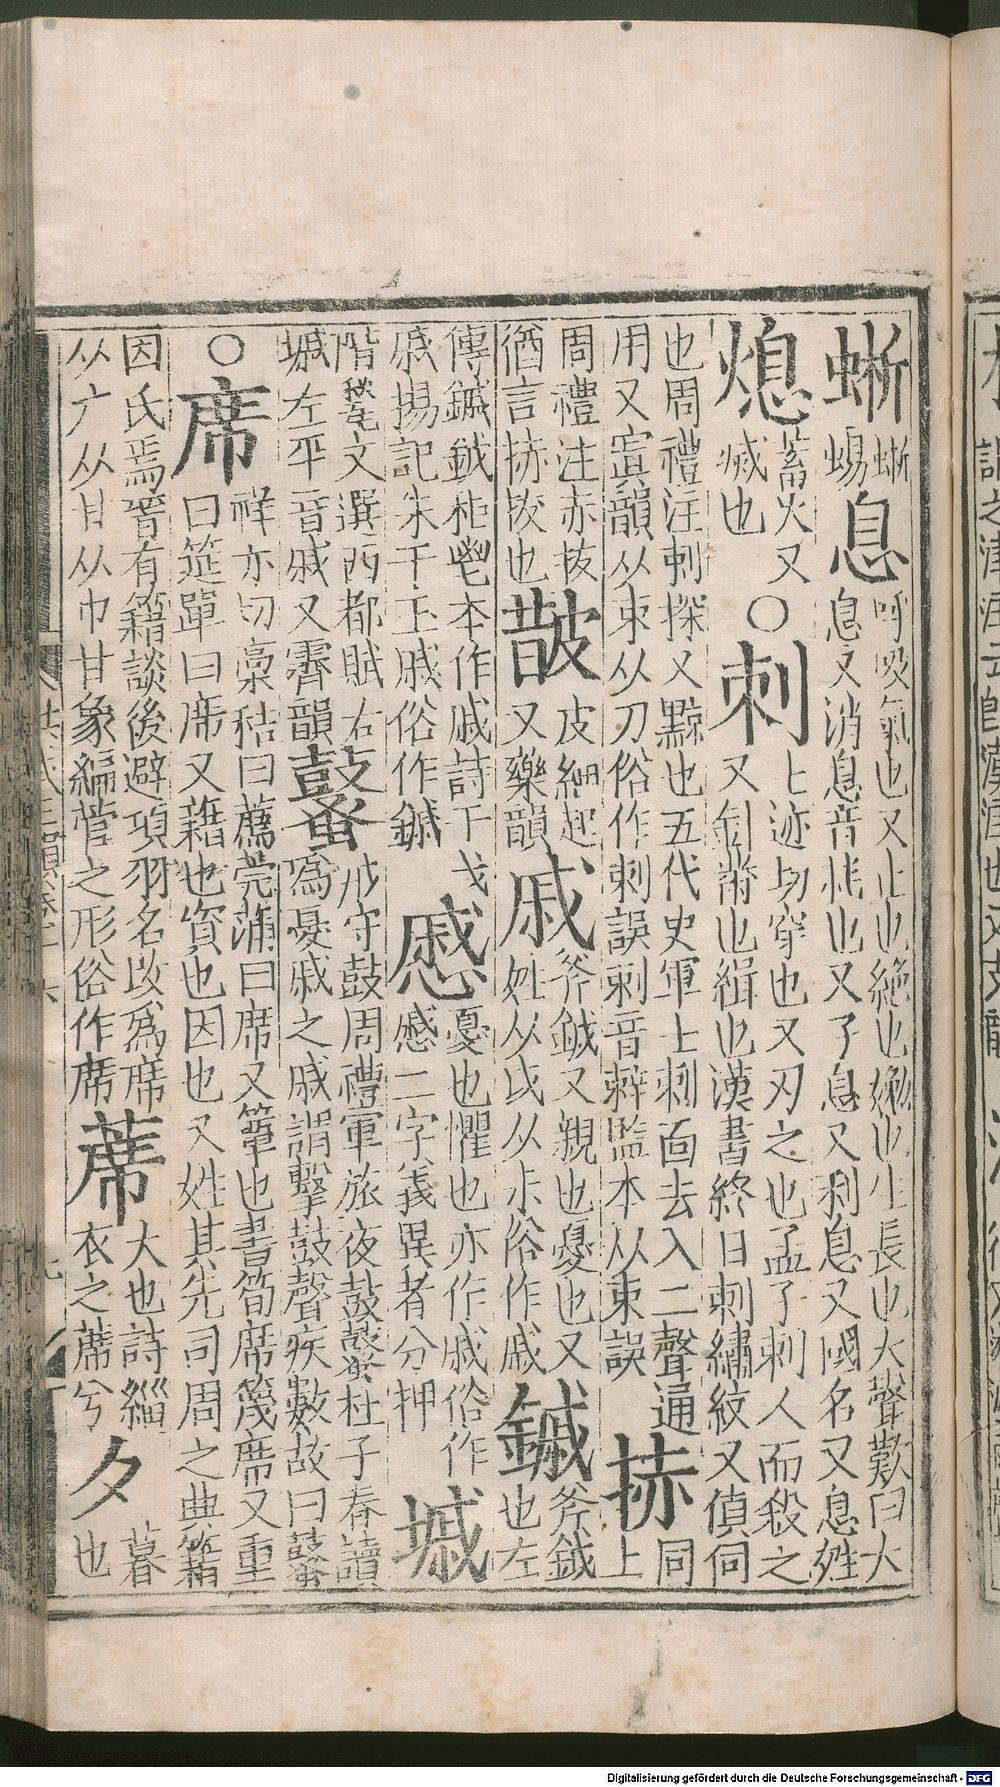 蜥 蜥蜴 息 呼吸氣也又止也絶也㛱也生長也大聲歎曰大息又消息音耗也又子息又利息又國名又息姓
熄 蓄火又滅也 〇 刺 七迹切穿也又刃之也孟子刺人而殺之又針黹也緝也漢書終日刺繡紋又偵伺
也周禮注刺探又黥也五代史軍士刺面去入二聲通用又寘韻从朿从刀俗作刺誤剌音辢監本从束誤 捇 同上
周禮注赤犮猶言捇拔也 皵 皮細起又藥韻 戚 斧鉞又親也憂也又姓从戉从尗俗作戚 鏚 斧鉞也左
傳鏚鉞秬鬯本作戚詩干戈戚揚記朱干玉戚俗作鏚 慼 憂也懼也亦作戚俗作慽二字義異者分押 墄
階甃文選西都賦右墄左平音戚又霽韻 鼜 戒守鼓周禮軍旅夜鼓鼜杜子春讀爲憂戚之戚謂擊鼓聲疾數故曰鼜
〇 席 祥亦切稾秸曰薦莞蒲曰席又簟也書筍席篾席又重曰筵單曰席又藉也資也因也又姓其先司周之典籍
因氏焉晉有籍談後避項羽名改爲席从广从甘从巾甘象編簟之形俗作席 蓆 大也詩緇衣之蓆兮 夕 暮也